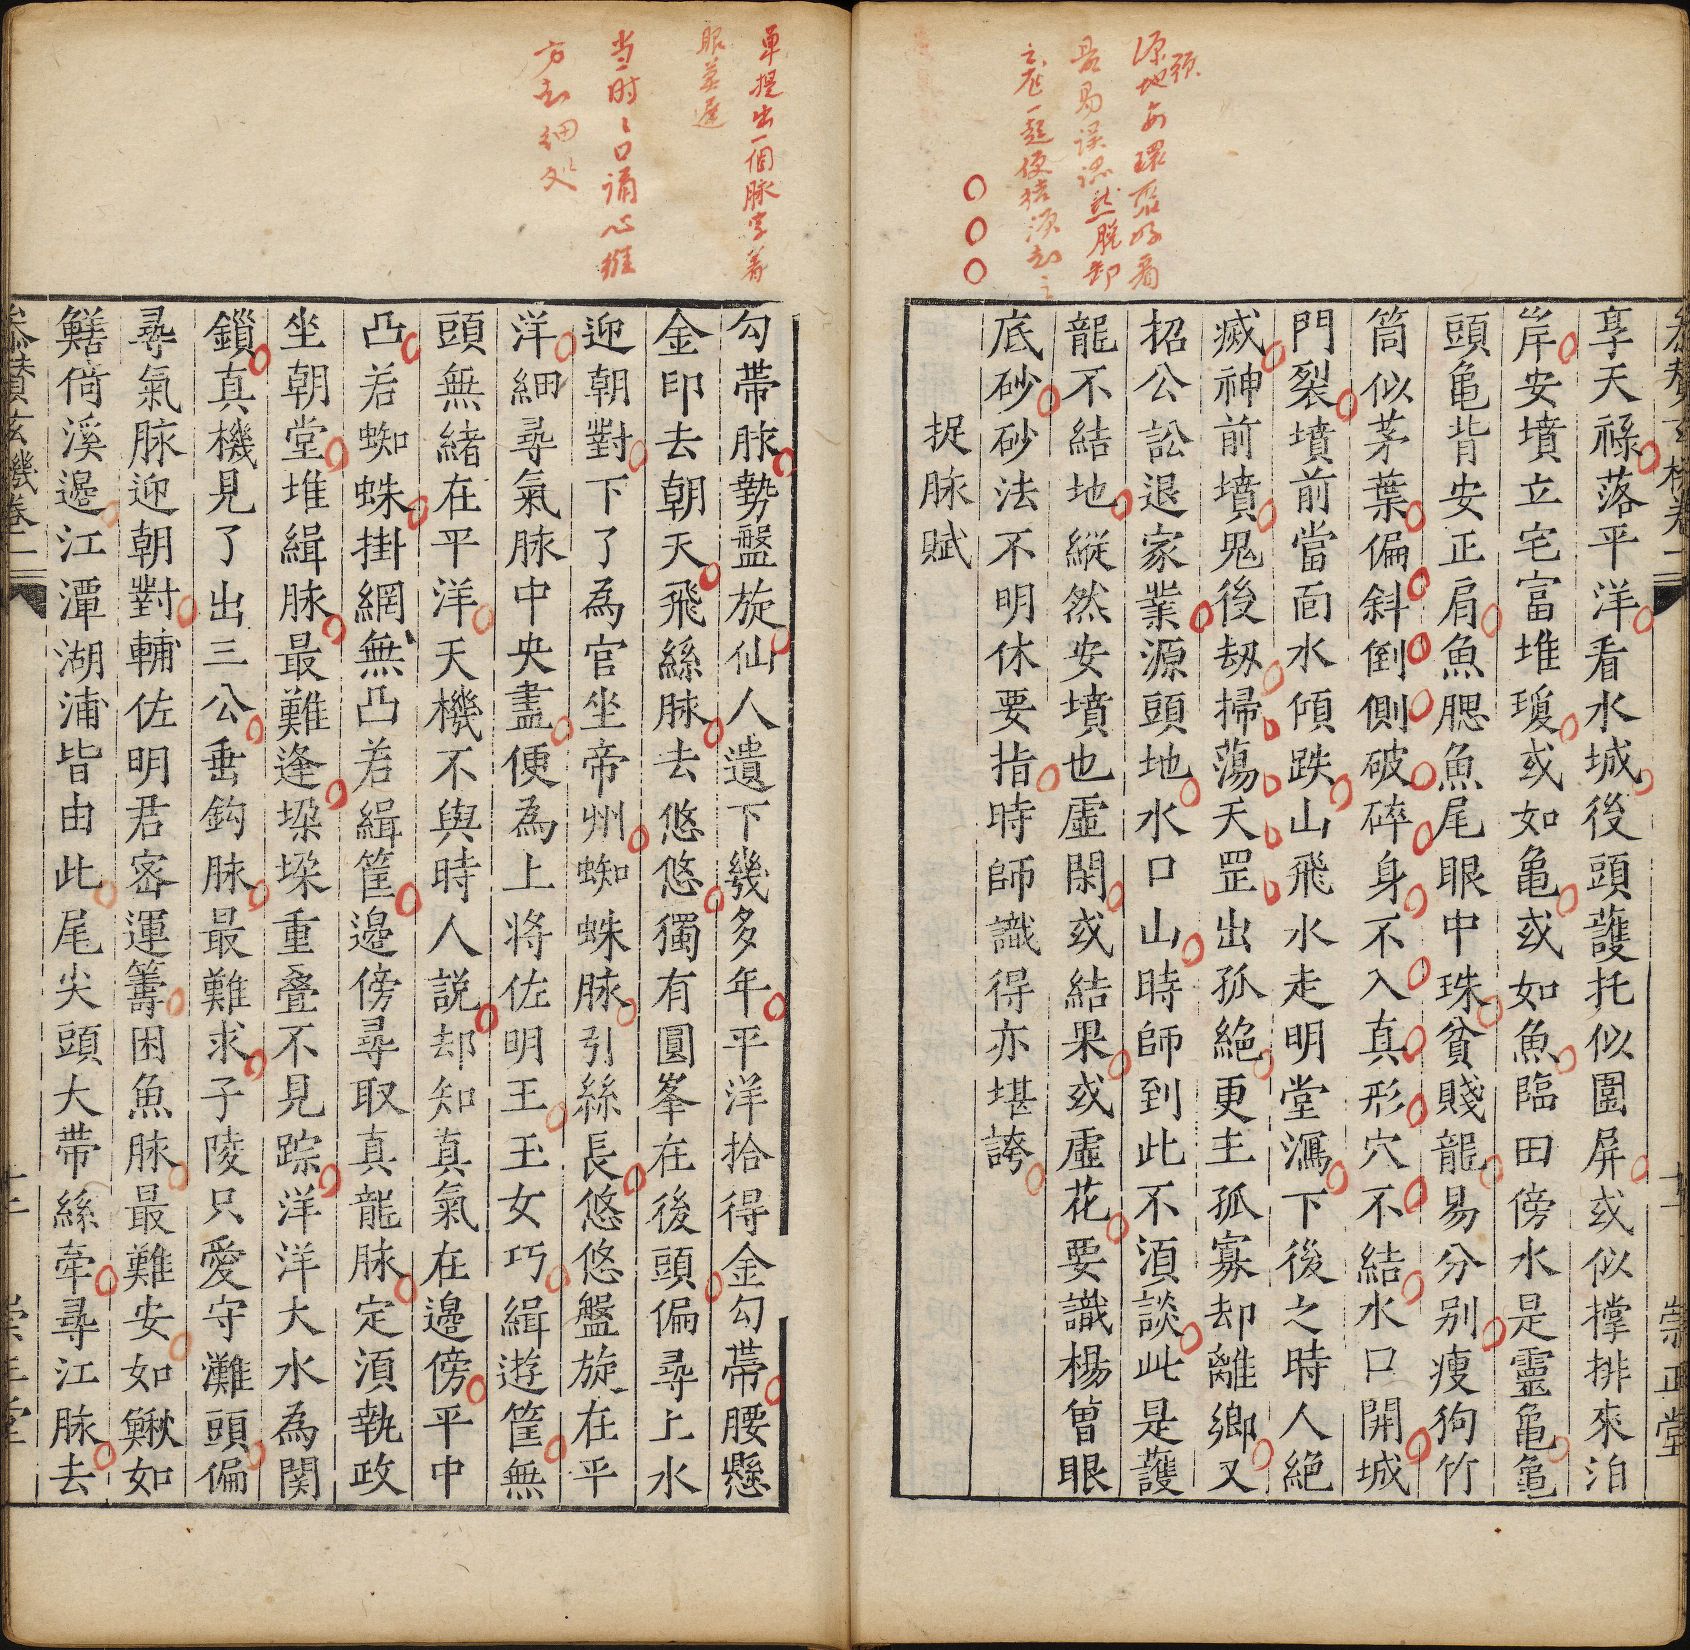 源頭地多環聚好看
最易誤認然脫卸
享天祿落平洋看水城後頭護托似圍屏或似撑排來泊
岸安墳立宅富堆瓊或如龜或如魚臨田傍水是靈龜龜
頭龜背安正肩魚腮魚尾眼中珠貧賤龍易分别瘦狗竹
筒似茅葉偏斜倒側破碎身不入真形穴不結水口開城
門裂墳前當面水傾跌山飛水走明堂瀉下後之時人絕
滅神前墳鬼後刼掃蕩天罡出孤絕更主孤寡却離鄉又
招公訟退家業源頭地水口山時師到此不湏談此是護
龍不結地縱然安墳也虛閑或結果或虛花要識楊曾眼
底砂砂法不明休要指時師識得亦堪誇
捉脉賦
單提出一個脉字着
眼英遲
當時口誦心維
勾帶脉勢盤旋仙人遺下幾多年平洋拾得金勾帶腰懸
金印去朝天飛絲脉去悠悠獨有圓峯在後頭偏尋上水
迎朝對下了為官坐帝州蜘蛛脉引絲長悠悠盤旋在平
洋細尋氣脉中央畫便為上将佐明王玉女巧緝遊筐無
頭無緒在平洋天機不與時人說却知真氣在邉傍平中
凸若蜘蛛掛網無凸若緝筐邉傍尋取真龍脉定湏執政
坐朝堂堆緝脉最難逢堁堁重叠不見踪洋洋大水為関
鎖真機見了出三公垂鈎脉最難求子陵只愛守灘頭偏
尋氣脉迎朝對輔佐明君密運籌困魚脉最難安如鰍如
鱔倚溪邉江潭湖浦皆由此尾尖頭大帶絲牽尋江脉去